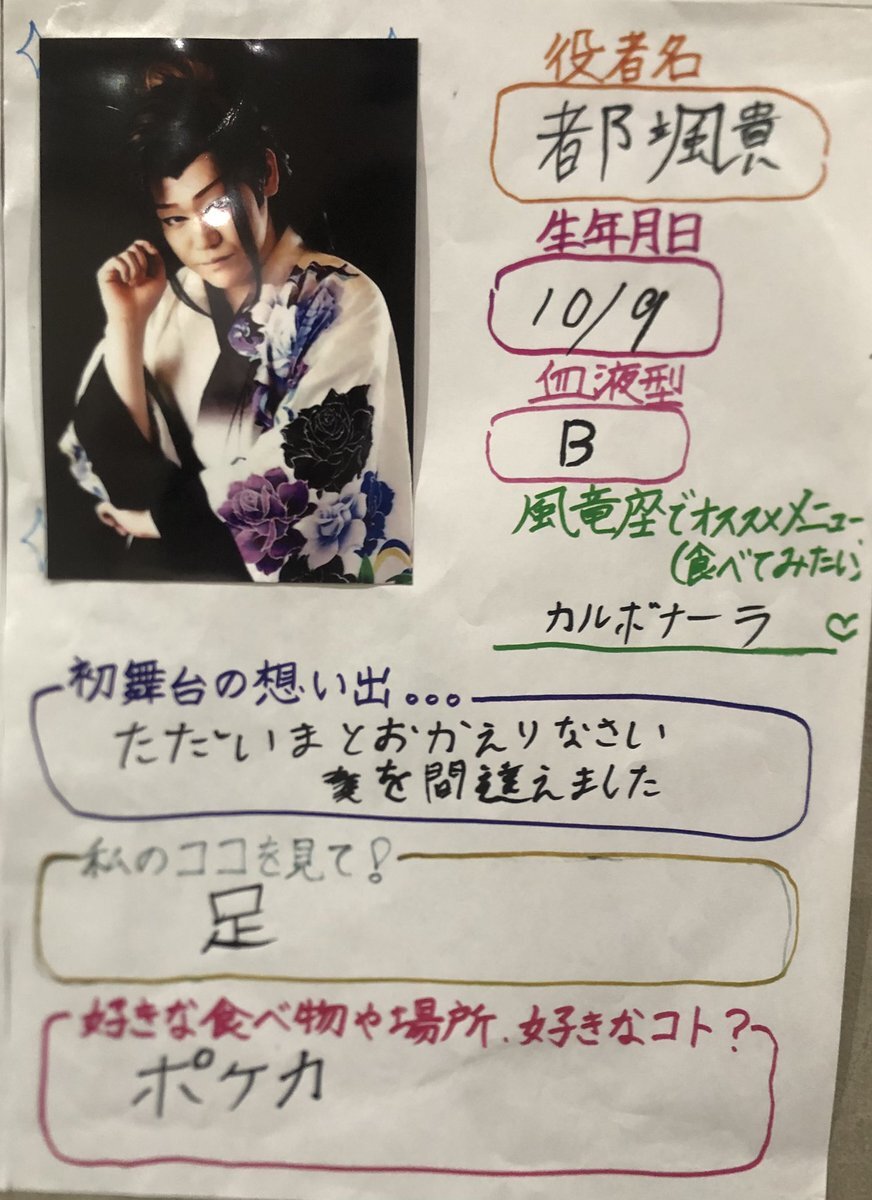 役者名
都颯貴
生年月日
10/9
血液型
B
風竜座でオススメメニュー
(食べてみたい)
カルボナーラ
初舞台の想い出。。。
ただいまとおかえりなさい
を間違えました
私のココを見て!
足
好きな食べ物や場所、好きなコト?
ポケカ